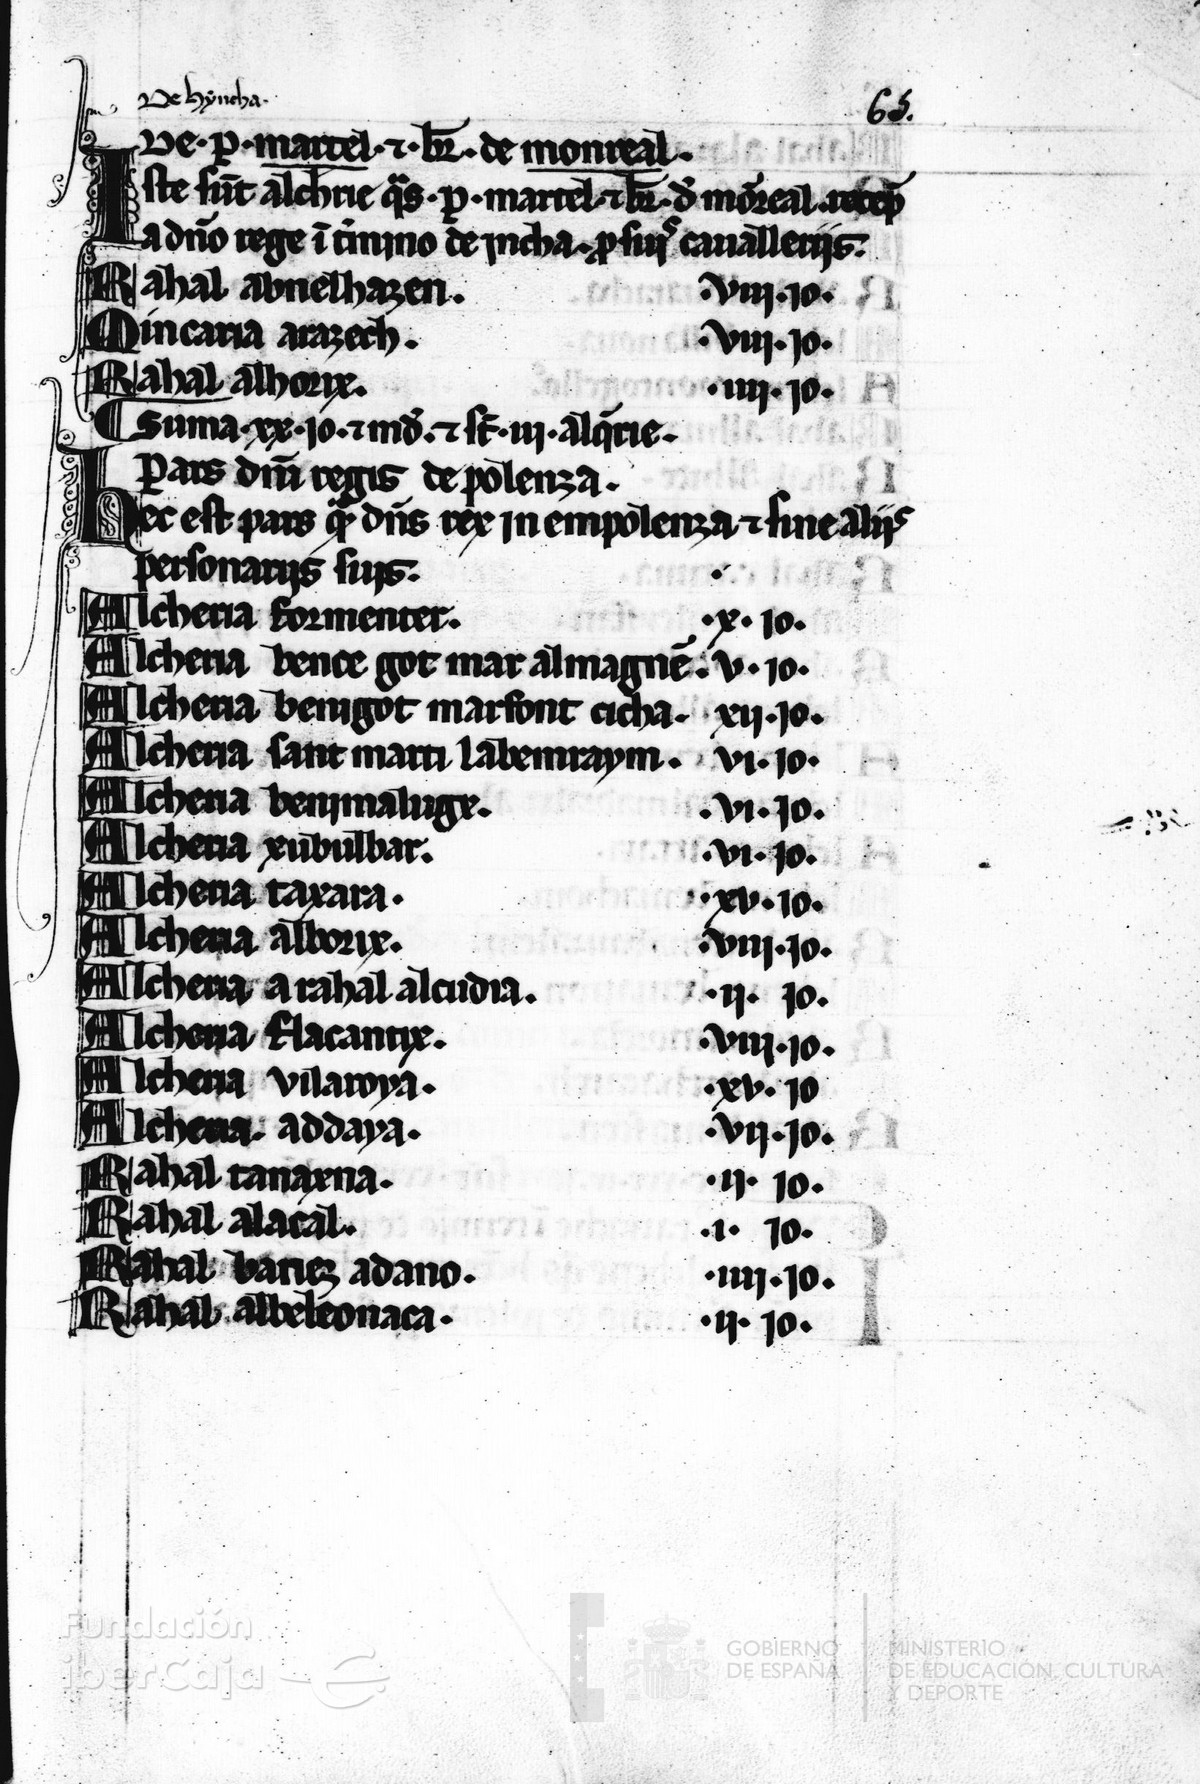 De Hyncha.
65.
De · P · martel · ⁊ · br̄ · de monreal ·
Iste sūt alch̄rie q̄s · P · martel · ⁊ br̄ · d̄ mōreal · recep̄
a dn̄o rege ī t̄mino de incha · p suis cauallerijs ·
Rahal abnelhazen · · viii · io ·
Mincaria arazech · · viii · io ·
Rahal alhorix · · iiii · io ·
Suma · xx · io · ⁊ md̄ · ⁊ st̄ · iii · alq̄rie ·
Pars dn̄i regis de polenza ·
Hec est pars q̄ dn̄s rex in empolenza ⁊ sine alijs
personarijs suis ·
Alcheria formenter · · x · io ·
Alcheria bence got mar almagnē · v · io ·
Alcheria benigot marfont cicha · xii · io ·
Alcheria sant marti labemraym · vi · io ·
Alcheria benimaluge · · vi · io ·
Alcheria xubulbar · · vi · io ·
Alcheria taxara · · xv · io ·
Alcheria alborix · · viii · io ·
Alcheria a rahal alcudia · · ii · io ·
Alcheria flacantix · · viii · io ·
Alcheria vilaroya · · xv · io
Alcheria · addaya · · vii · io ·
Rahal tanaxna · · ii · io ·
Rahal alacal · · i · io ·
Rahal bariez adano · · iiii · io ·
Rahal albeleonaca · · ii · io ·
Fundación
iberCaja
GOBIERNO
DE ESPAÑA
MINISTERIO
DE EDUCACIÓN, CULTURA
Y DEPORTE